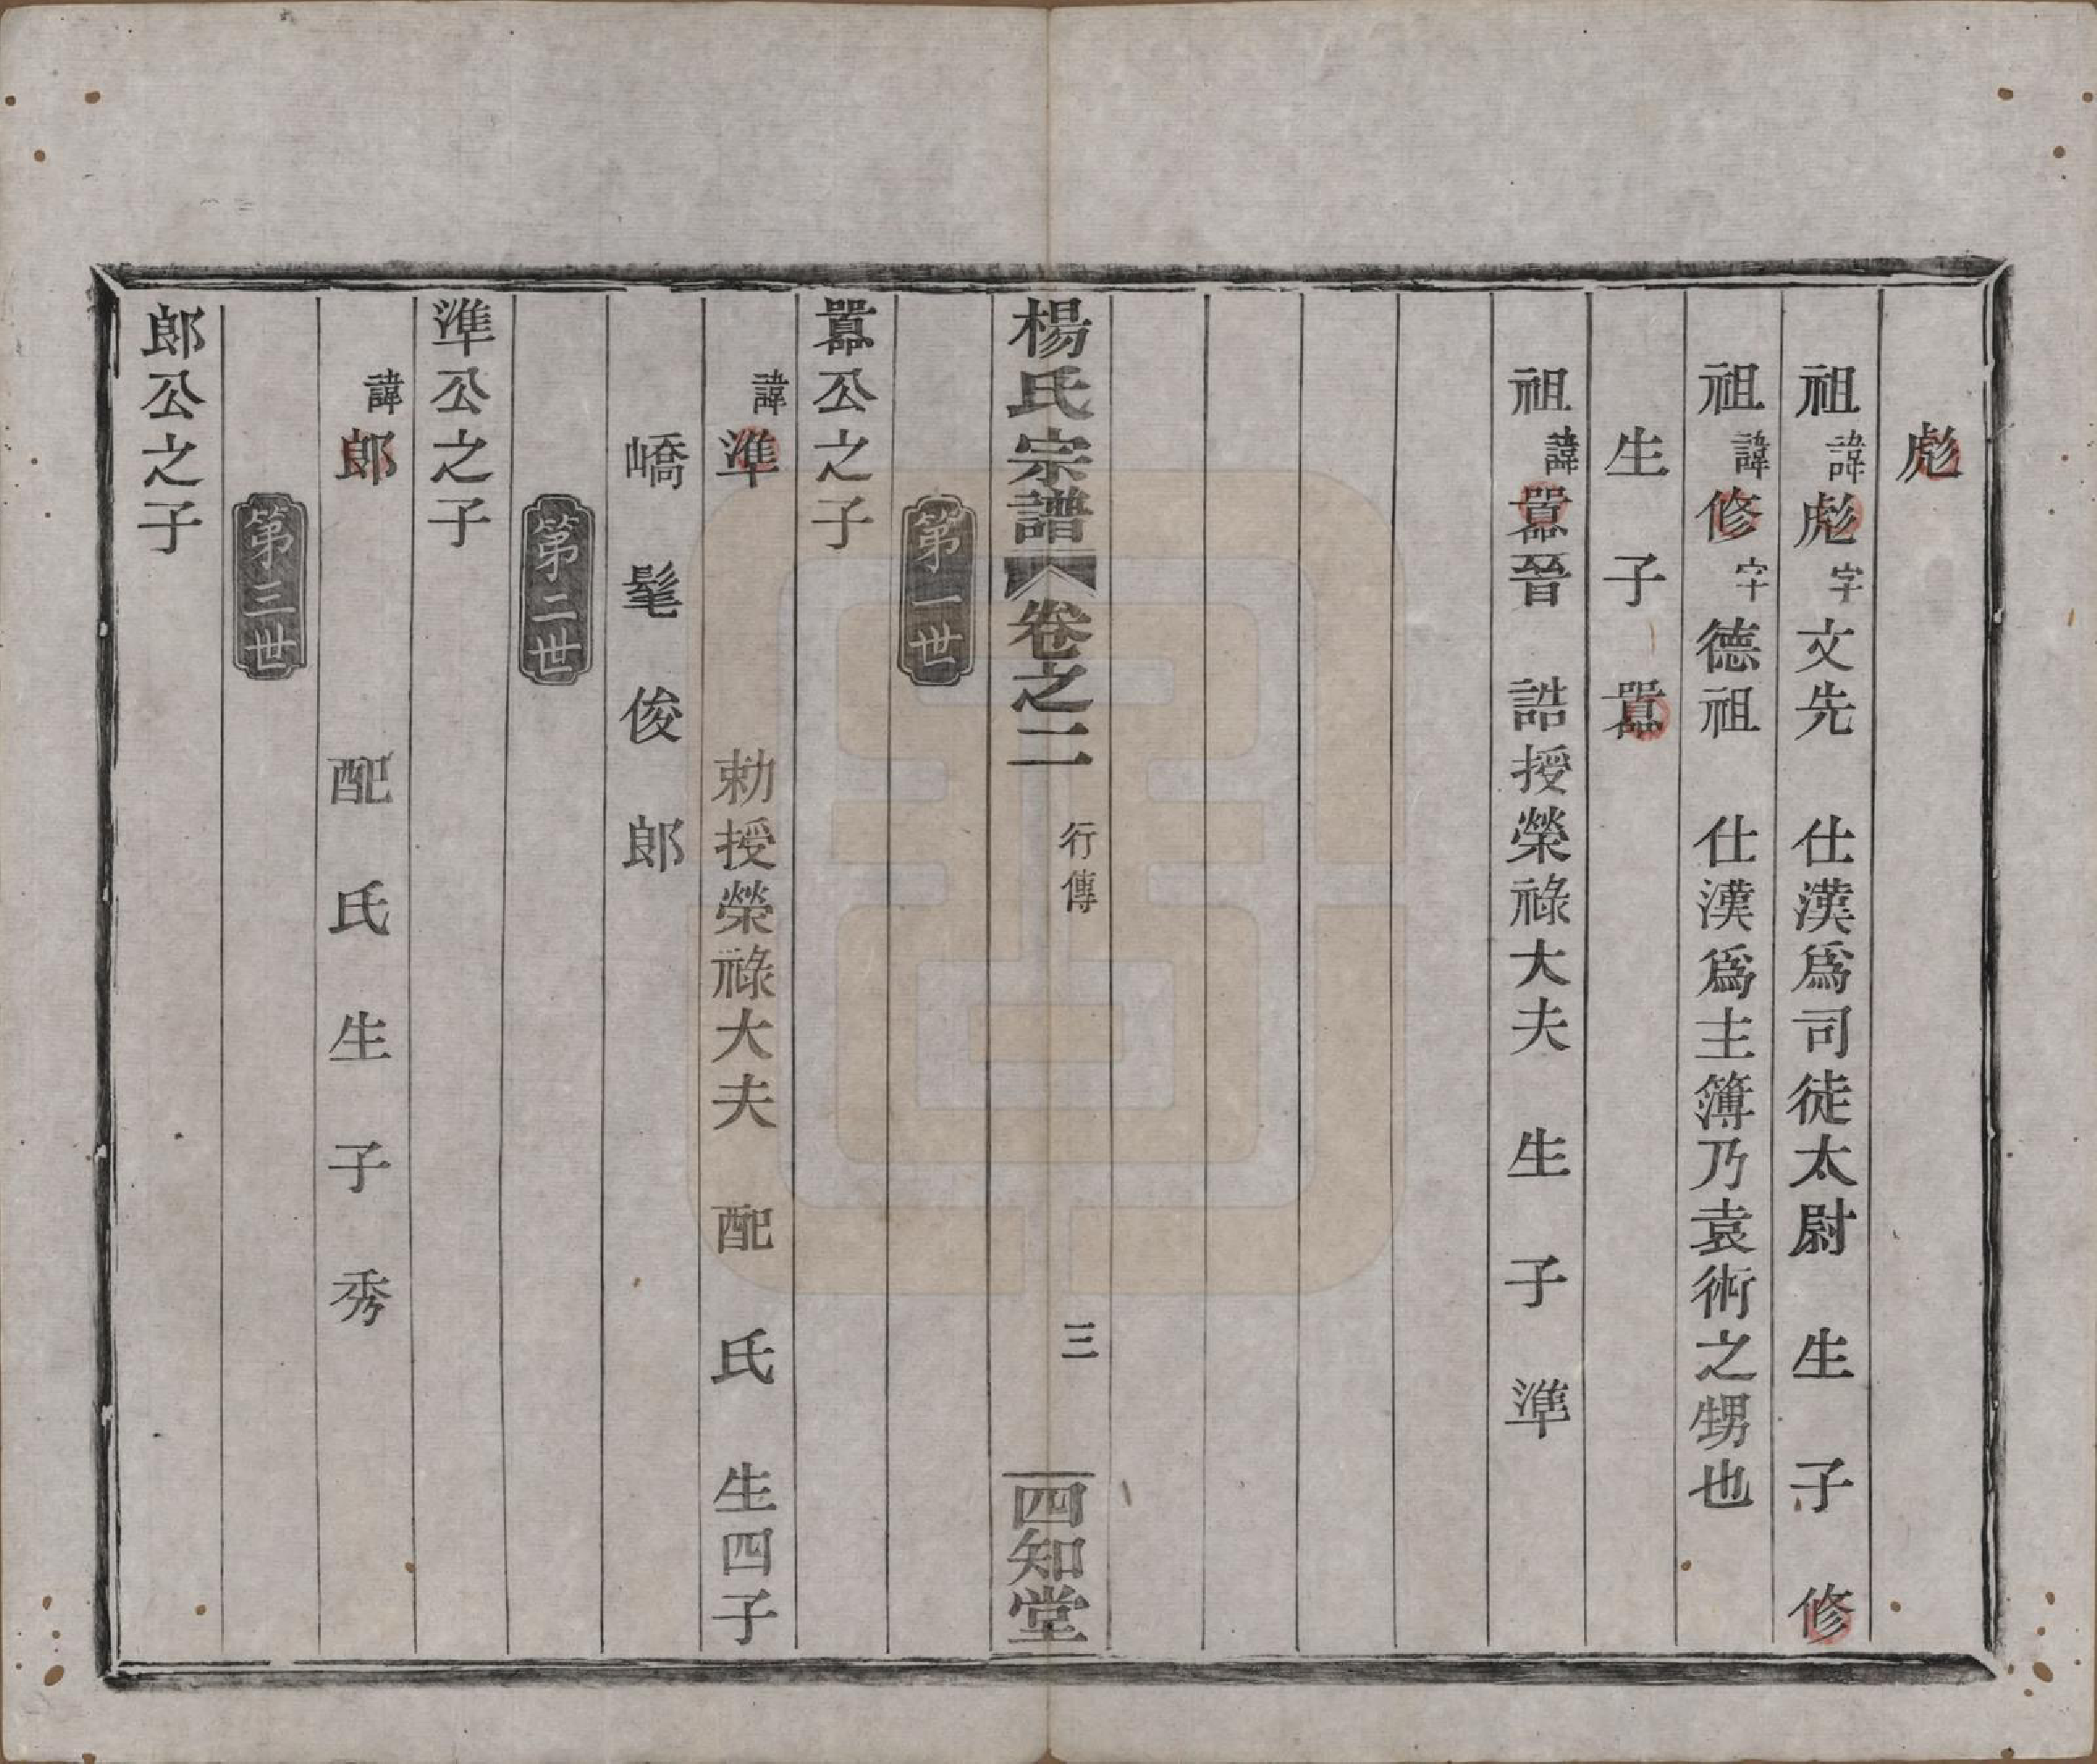 彪
祖諱彪字文先　仕漢爲司徒太尉　生子修
祖諱修字德祖　仕漢爲主簿乃袁術之甥也
生子囂
祖諱囂晉　誥授榮祿大夫　生子準
楊氏宗譜　卷之二　行傳　三　四知堂
第一世
囂公之子
諱準　勅授榮祿大夫　配氏　生四子
嶠　髦　俊　郎
第二世
準公之子
諱郎　配氏生子秀
第三世
郎公之子